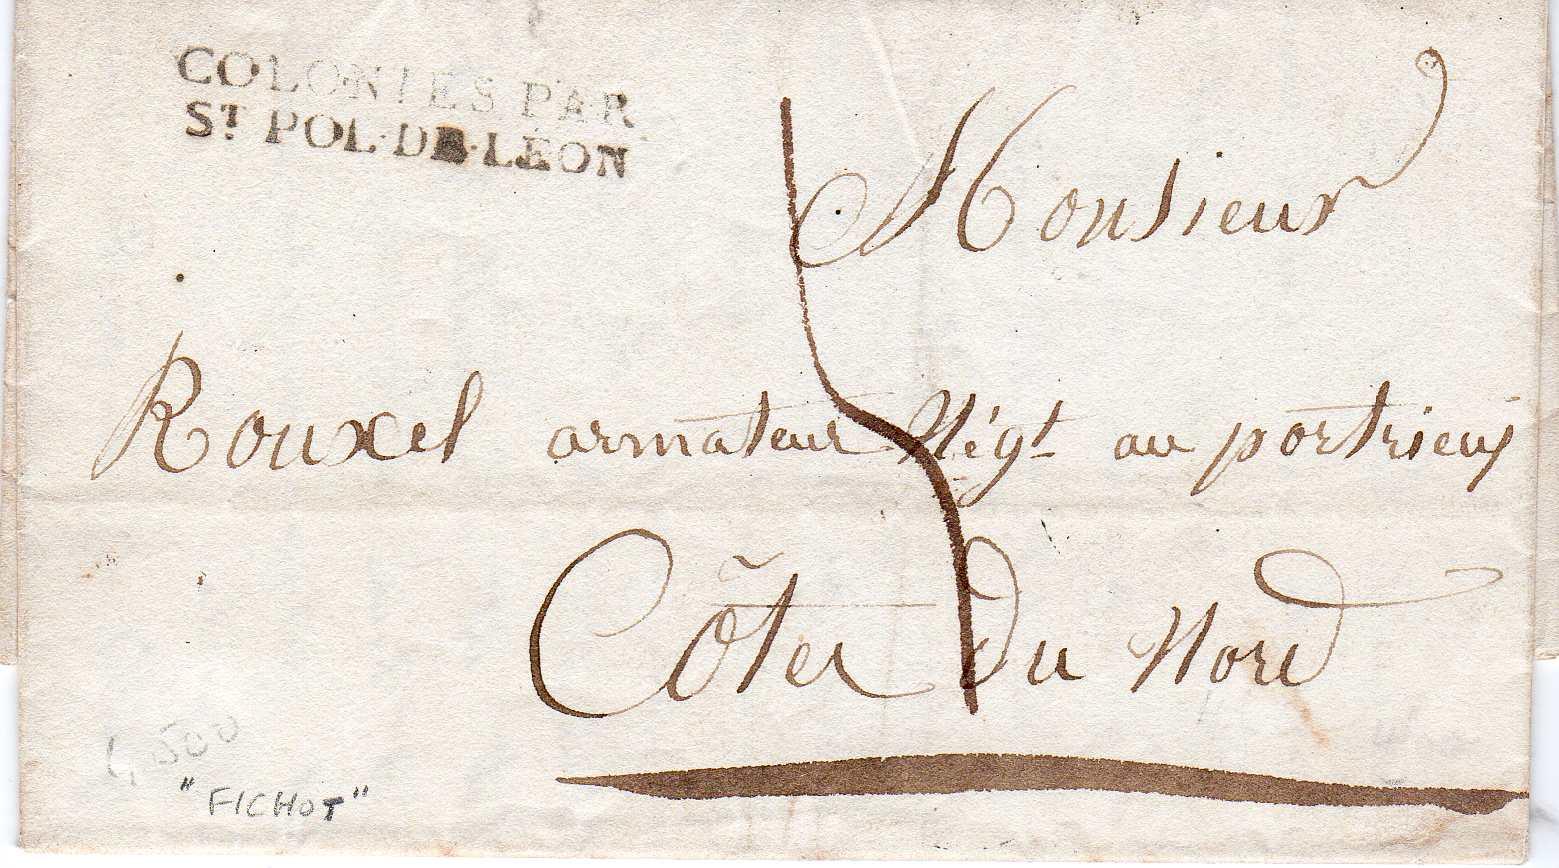 COLONIES PAR
ST POL-DE-LEON
Monsieur
Rouxel armateur Négt au portrieux
Côtes du Nord
5
"FICHOT"